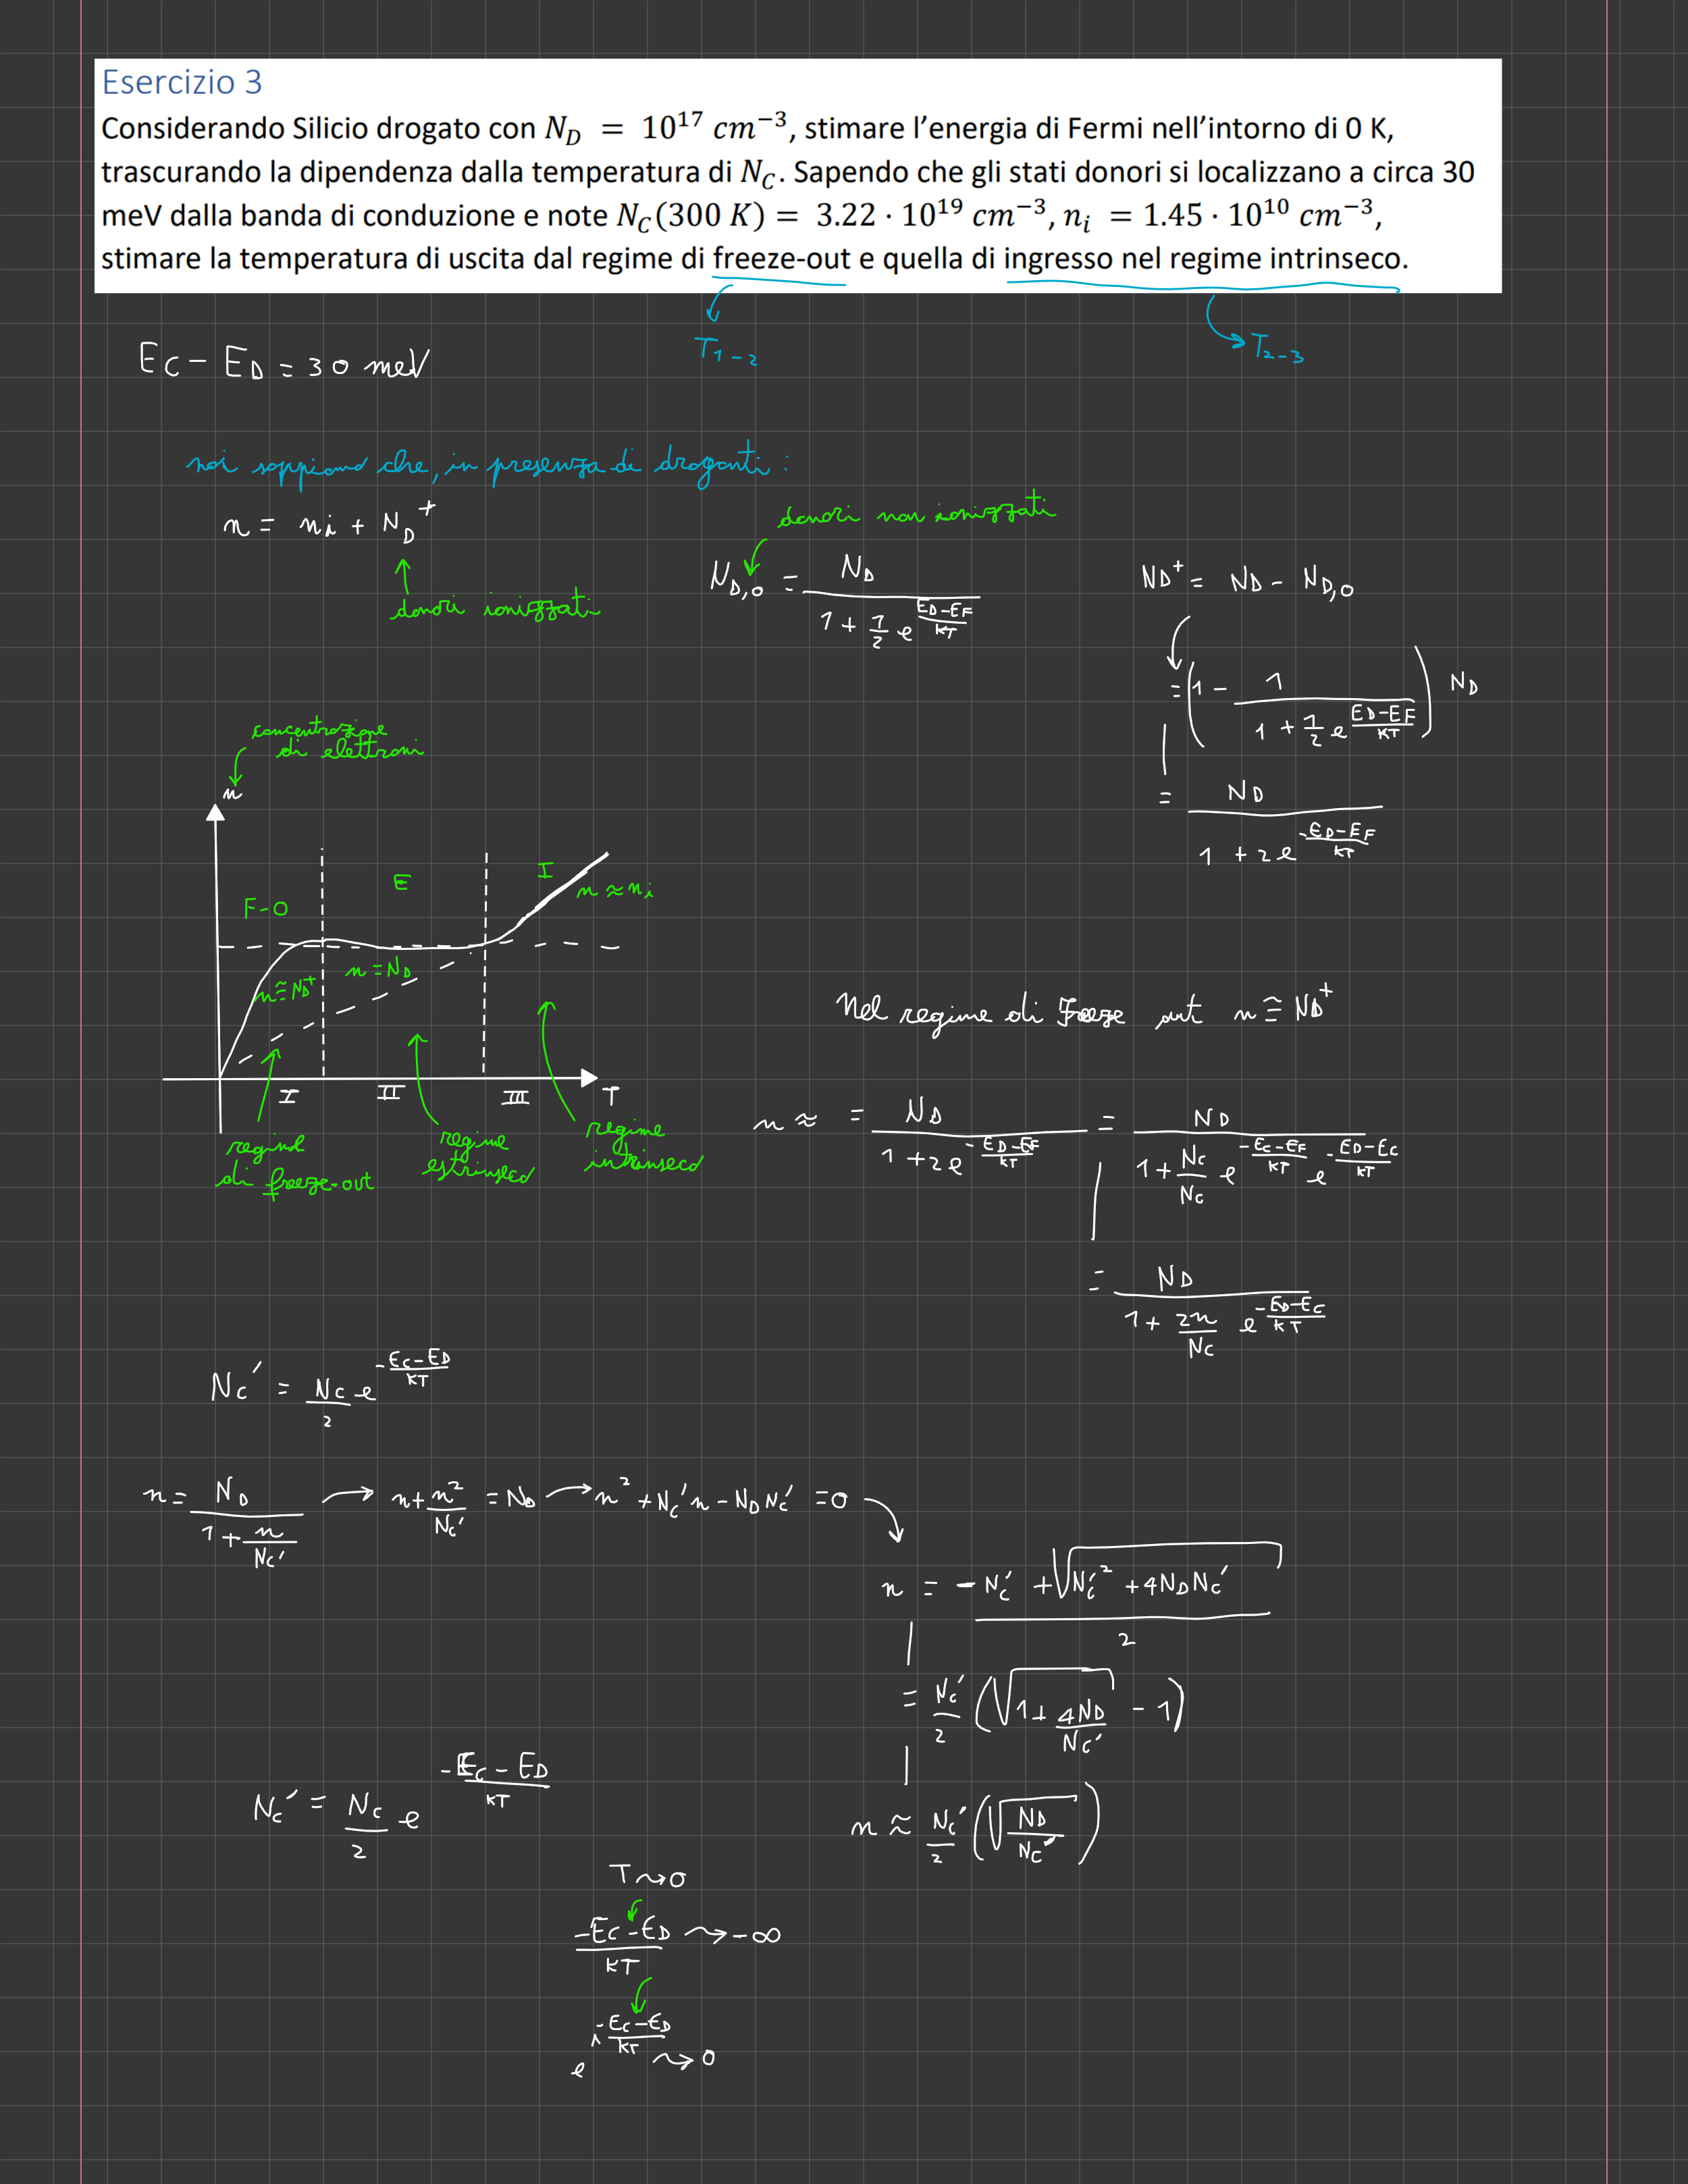 Esercizio 3
Considerando Silicio drogato con N_D = 10^17 cm^−3, stimare l'energia di Fermi nell'intorno di 0 K,
trascurando la dipendenza dalla temperatura di N_C. Sapendo che gli stati donori si localizzano a circa 30
meV dalla banda di conduzione e note N_C(300 K) = 3.22 · 10^19 cm^−3, n_i = 1.45 · 10^10 cm^−3,
stimare la temperatura di uscita dal regime di freeze-out e quella di ingresso nel regime intrinseco.
T_1-2
T_2-3
E_C - E_D = 30 meV
noi sappiamo che, in presenza di droganti:
n = n_i + N_D^+
donori ionizzati
donori non ionizzati
N_D,0 = N_D / (1 + 1/2 e^((E_D-E_F)/KT))
N_D^+ = N_D - N_D,0
= (1 - 1 / (1 + 1/2 e^((E_D-E_F)/KT))) N_D
= N_D / (1 + 2e^(-(E_D-E_F)/KT))
concentrazione
di elettroni
n
F-O
E
I
n ≈ n_i
n ≅ N_D^+
n = N_D
I
II
III
T
regime
di freeze-out
regime
estrinseco
regime
intrinseco
Nel regime di Freeze out n ≅ N_D^+
n ≈ = N_D / (1 + 2e^(-(E_D-E_F)/KT)) = N_D / (1 + N_C/N_C e^(-(E_C-E_F)/KT) e^(-(E_D-E_C)/KT))
= N_D / (1 + 2n/N_C e^(-(E_D-E_C)/KT))
N_C' = N_C/2 e^(-(E_C-E_D)/KT)
n = N_D / (1 + n/N_C') → n + n^2/N_C' = N_D → n^2 + N_C' n - N_D N_C' = 0
n = (-N_C' + √(N_C'^2 + 4N_D N_C')) / 2
= N_C'/2 (√(1 + 4N_D/N_C') - 1)
n ≈ N_C'/2 (√(N_D/N_C'))
N_C' = N_C/2 e^(-(E_C-E_D)/KT)
T ⇝ 0
-(E_C-E_D)/KT ⇝ -∞
e^(-(E_C-E_D)/KT) ⇝ 0